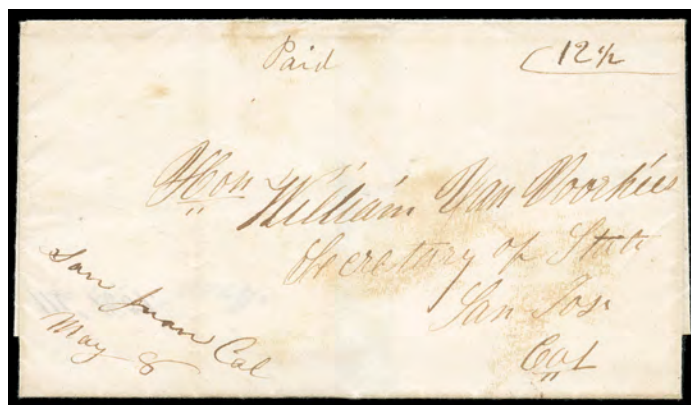 Paid 12 1/2
Hon William Van Voorhies
Secretary of State
San Jose
Cal
San Juan Cal
May 8